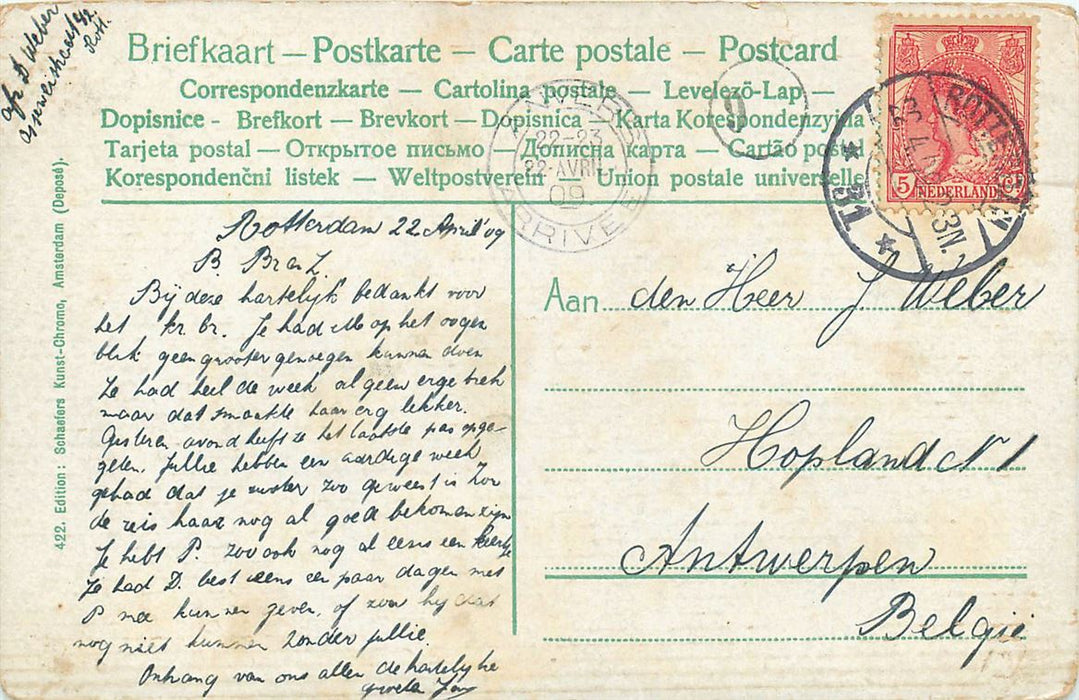 afz D Weber
Briefkaart — Postkarte — Carte postale — Postcard
Correspondenzkarte — Cartolina postale — Levelező-Lap —
Dopisnice - Brefkort — Brevkort — Dopisnica — Karta Korespondenzyjna
Tarjeta postal — Открытое письмо — Дописна карта — Cartão postal
Korespondenčni listek — Weltpostverein — Union postale universelle
ANVERS
22-23
22 AVRIL
09
ARRIVEE
9
ROTTERDAM
31
5 NEDERLAND 5
422. Edition: Schaefers Kunst-Chromo, Amsterdam (Deposé).
Rotterdam 22 April '09
B. Br en Z.
Bij deze hartelijk bedankt voor
het kr. br. Je had me op het oogen
blik geen grooter genoegen kunnen doen
Ze had heel de week al geen erge trek
maar dat smaakte haar erg lekker.
Gisteren avond heeft ze het laatste pas opge-
geten. Jullie hebben een aardige week
gehad dat je zuster zoo geweest is hoe
de reis haar nog al goed bekomen zijn
Je hebt P. zoo ook nog al eens een
Ze had D. best eens een paar dagen met
P mee kunnen geven, of zou hij dat
nog niet kunnen zonder jullie
Ontvang van ons allen de hartelijke
groeten
Aan den Heer J Weber
Hopland N 1
Antwerpen
België